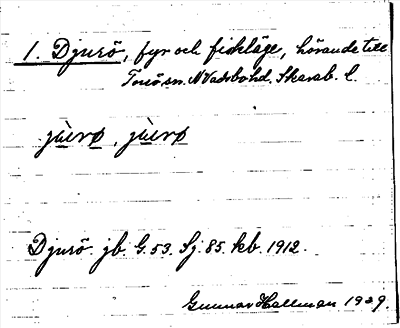 1. Djurö, fyr och fiskläge, hörande till
Torsö sn. N Vadsbo hd. Skarab. l.
jùrø, jùrø
Djurö jb. G. 53. Sj. 85. kb. 1912.
Gunnar Hallman 1929.